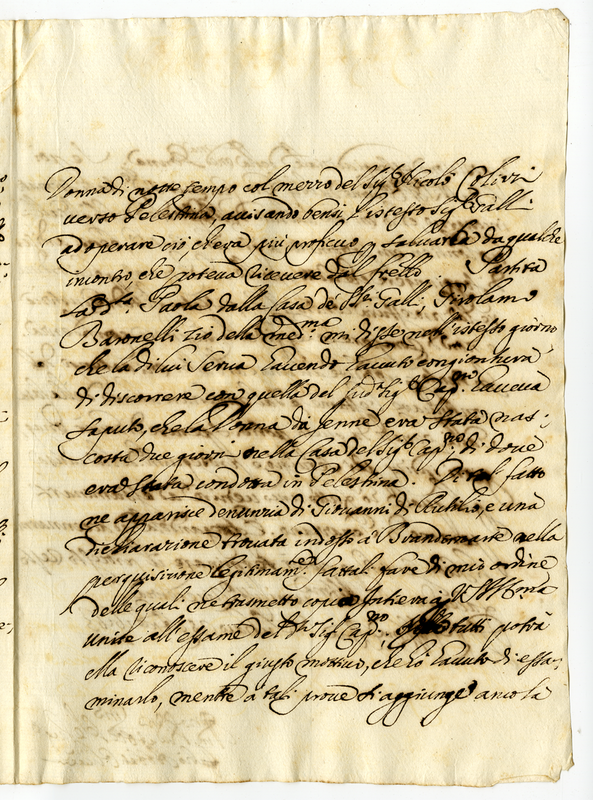 Donna di notte tempo col mezzo del Sig.r Nicolò Colizzi
verso Pelestrina, avisando bensi l'istesso Sig.r Galli
ad operare ciò, che era più proficuo p salvarla da qualche
incontro che poteva ricevere dal frello. Partita
la d.a Paola dalla Casa de SS.ri Galli, Girolamo
Baronelli zio della med.ma mi disse nell'istesso giorno
che la di lui Serva havendo havuto congiontura
di discorrere con quella del sud.o Sig.r Cap.no haveva
saputo, che la Donna da Jenne era stata nas:
costa due giorni nella Casa del Sig.r Cap.no, di dove
era stata condotta in Pelestrina. Di tal fatto
ne apparisce denunzia di Giovanni di Rutilio, e una
dichiarazione trovata indosso à Brandemarte nella
perquisizione legitimam.e fattali fare di mio ordine
delle quali ne trasmetto copia intiera à V.S. Ill.ma
unite all'essame del Sig.r Cap.no, tutti potrà
ella riconoscere il giusto mottivo, che hò havuto di essa:
minarlo, mentre à tali prove si aggiunge ancora